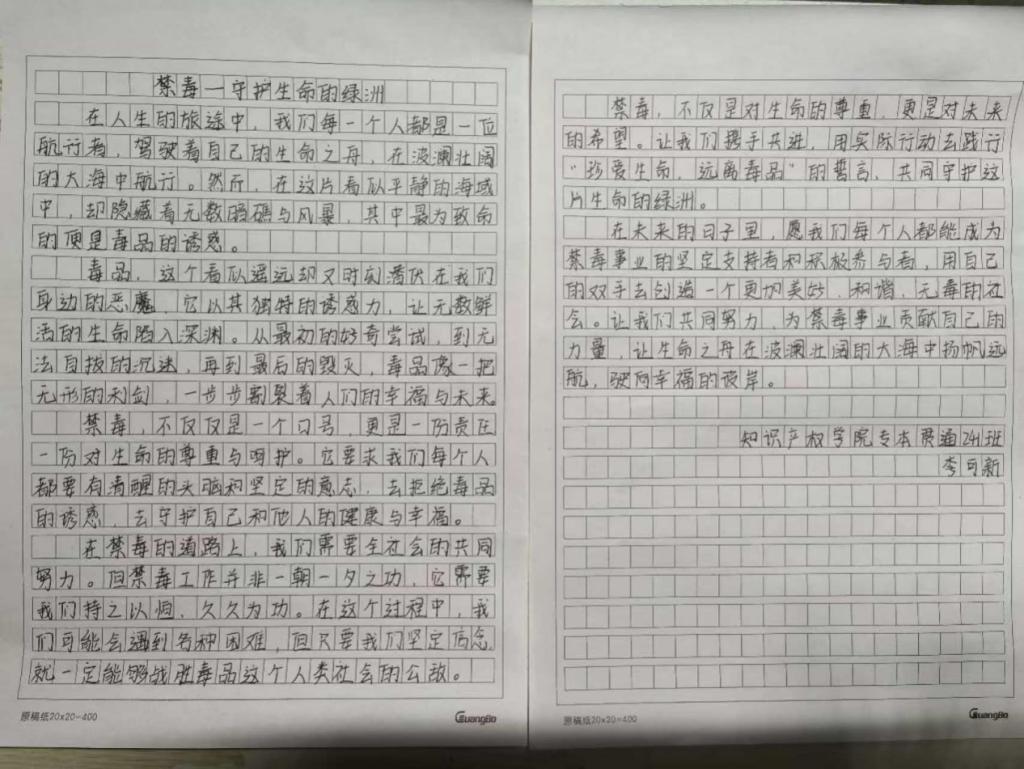 禁毒—守护生命的绿洲
在人生的旅途中，我们每一个人都是一位
航行者，驾驶着自己的生命之舟，在波澜壮阔
的大海中航行。然而，在这片看似平静的海域
中，却隐藏着无数暗礁与风暴，其中最为致命
的便是毒品的诱惑。
毒品，这个看似遥远却又时刻潜伏在我们
身边的恶魔，它以其独特的诱惑力，让无数鲜
活的生命陷入深渊。从最初的好奇尝试，到无
法自拔的沉迷，再到最后的毁灭，毒品像一把
无形的利剑，一步步割裂着人们的幸福与未来。
禁毒，不仅仅是一个口号，更是一份责任
一份对生命的尊重与呵护。它要求我们每个人
都要有清醒的头脑和坚定的意志，去拒绝毒品
的诱惑，去守护自己和他人的健康与幸福。
在禁毒的道路上，我们需要全社会的共同
努力。但禁毒工作并非一朝一夕之功，它需要
我们持之以恒，久久为功。在这个过程中，我
们可能会遇到各种困难，但只要我们坚定信念，
就一定能够战胜毒品这个人类社会的公敌。
原稿纸20×20=400
GuangBo
禁毒，不仅是对生命的尊重，更是对未来
的希望。让我们携手共进，用实际行动去践行
“珍爱生命，远离毒品”的誓言，共同守护这
片生命的绿洲。
在未来的日子里，愿我们每个人都能成为
禁毒事业的坚定支持者和积极参与者，用自己
的双手去创造一个更加美好、和谐、无毒的社
会。让我们共同努力，为禁毒事业贡献自己的
力量，让生命之舟在波澜壮阔的大海中扬帆远
航，驶向幸福的彼岸。
知识产权学院专本贯通241班
李可新
原稿纸20×20=400
GuangBo